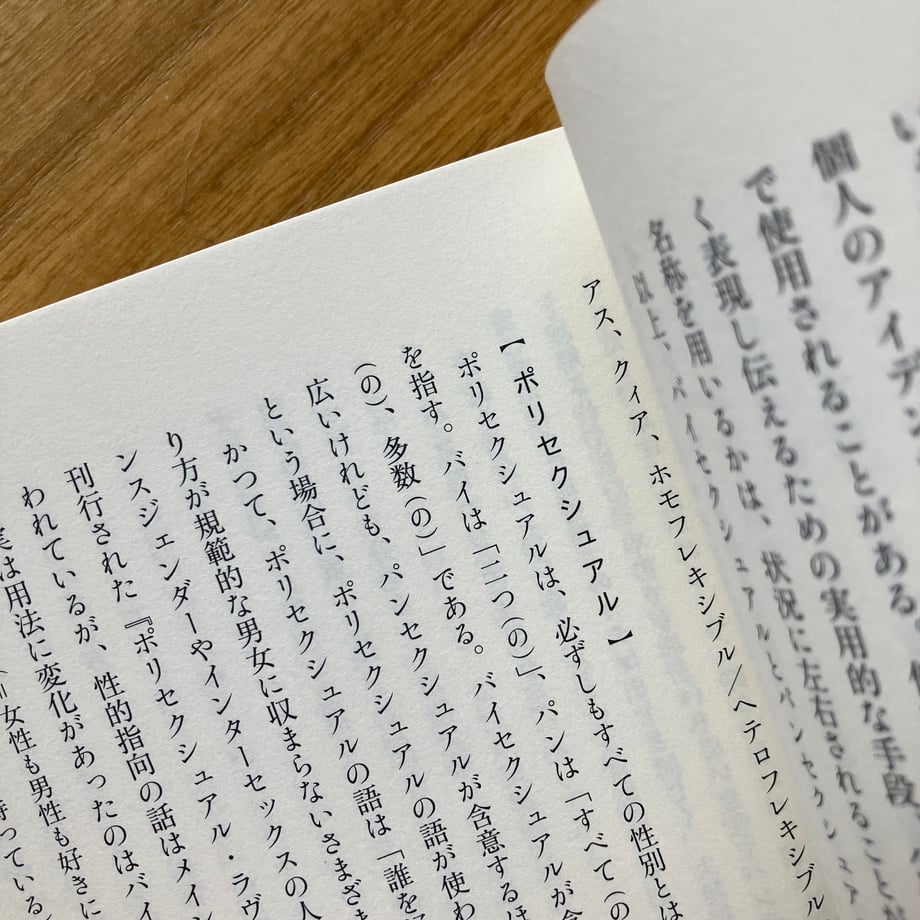 個人のアイデン
で使用されることがある。
く表現し伝えるための実用的な手段
名称を用いるかは、状況に左右されること
以上、バイセクシュアルとパンセクシュア
アス、クィア、ホモフレキシブル/ヘテロフレキシブル
【ポリセクシュアル】
ポリセクシュアルは、必ずしもすべての性別とは
を指す。バイは「二つ(の)」、パンは「すべて(の
(の)、多数(の)」である。バイセクシュアルが含
広いけれども、パンセクシュアルが含意するほ
という場合に、ポリセクシュアルの語が使わ
かつて、ポリセクシュアルの語は「誰を
り方が規範的な男女に収まらないさまざま
ンスジェンダーやインターセックスの人
刊行された『ポリセクシュアル・ラヴ
われているが、性的指向の話はメイン
実は用法に変化があったのはバイ
女性も男性も好きに
持っている